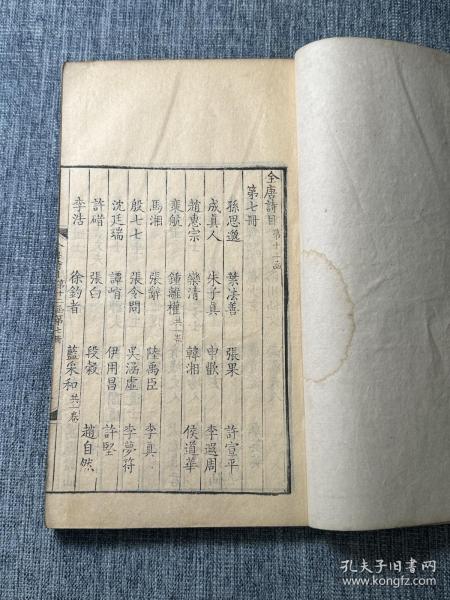 全唐詩目 第十二函
第七冊
孫思邈 葉法善 張果 許宣平
成真人 朱子真 申歡 李遐周
趙惠宗 欒清 韓湘 侯道華
裴航 鍾離權 共一卷
馬湘 張辭 陸禹臣 李真
殷七七 張令問 吳涵虛 李夢符
沈廷瑞 譚峭 伊用昌 許堅
許碏 張白 段 趙自然
李浩 徐釣者 藍采和 共一卷
孔夫子旧书网
www.kongfz.com